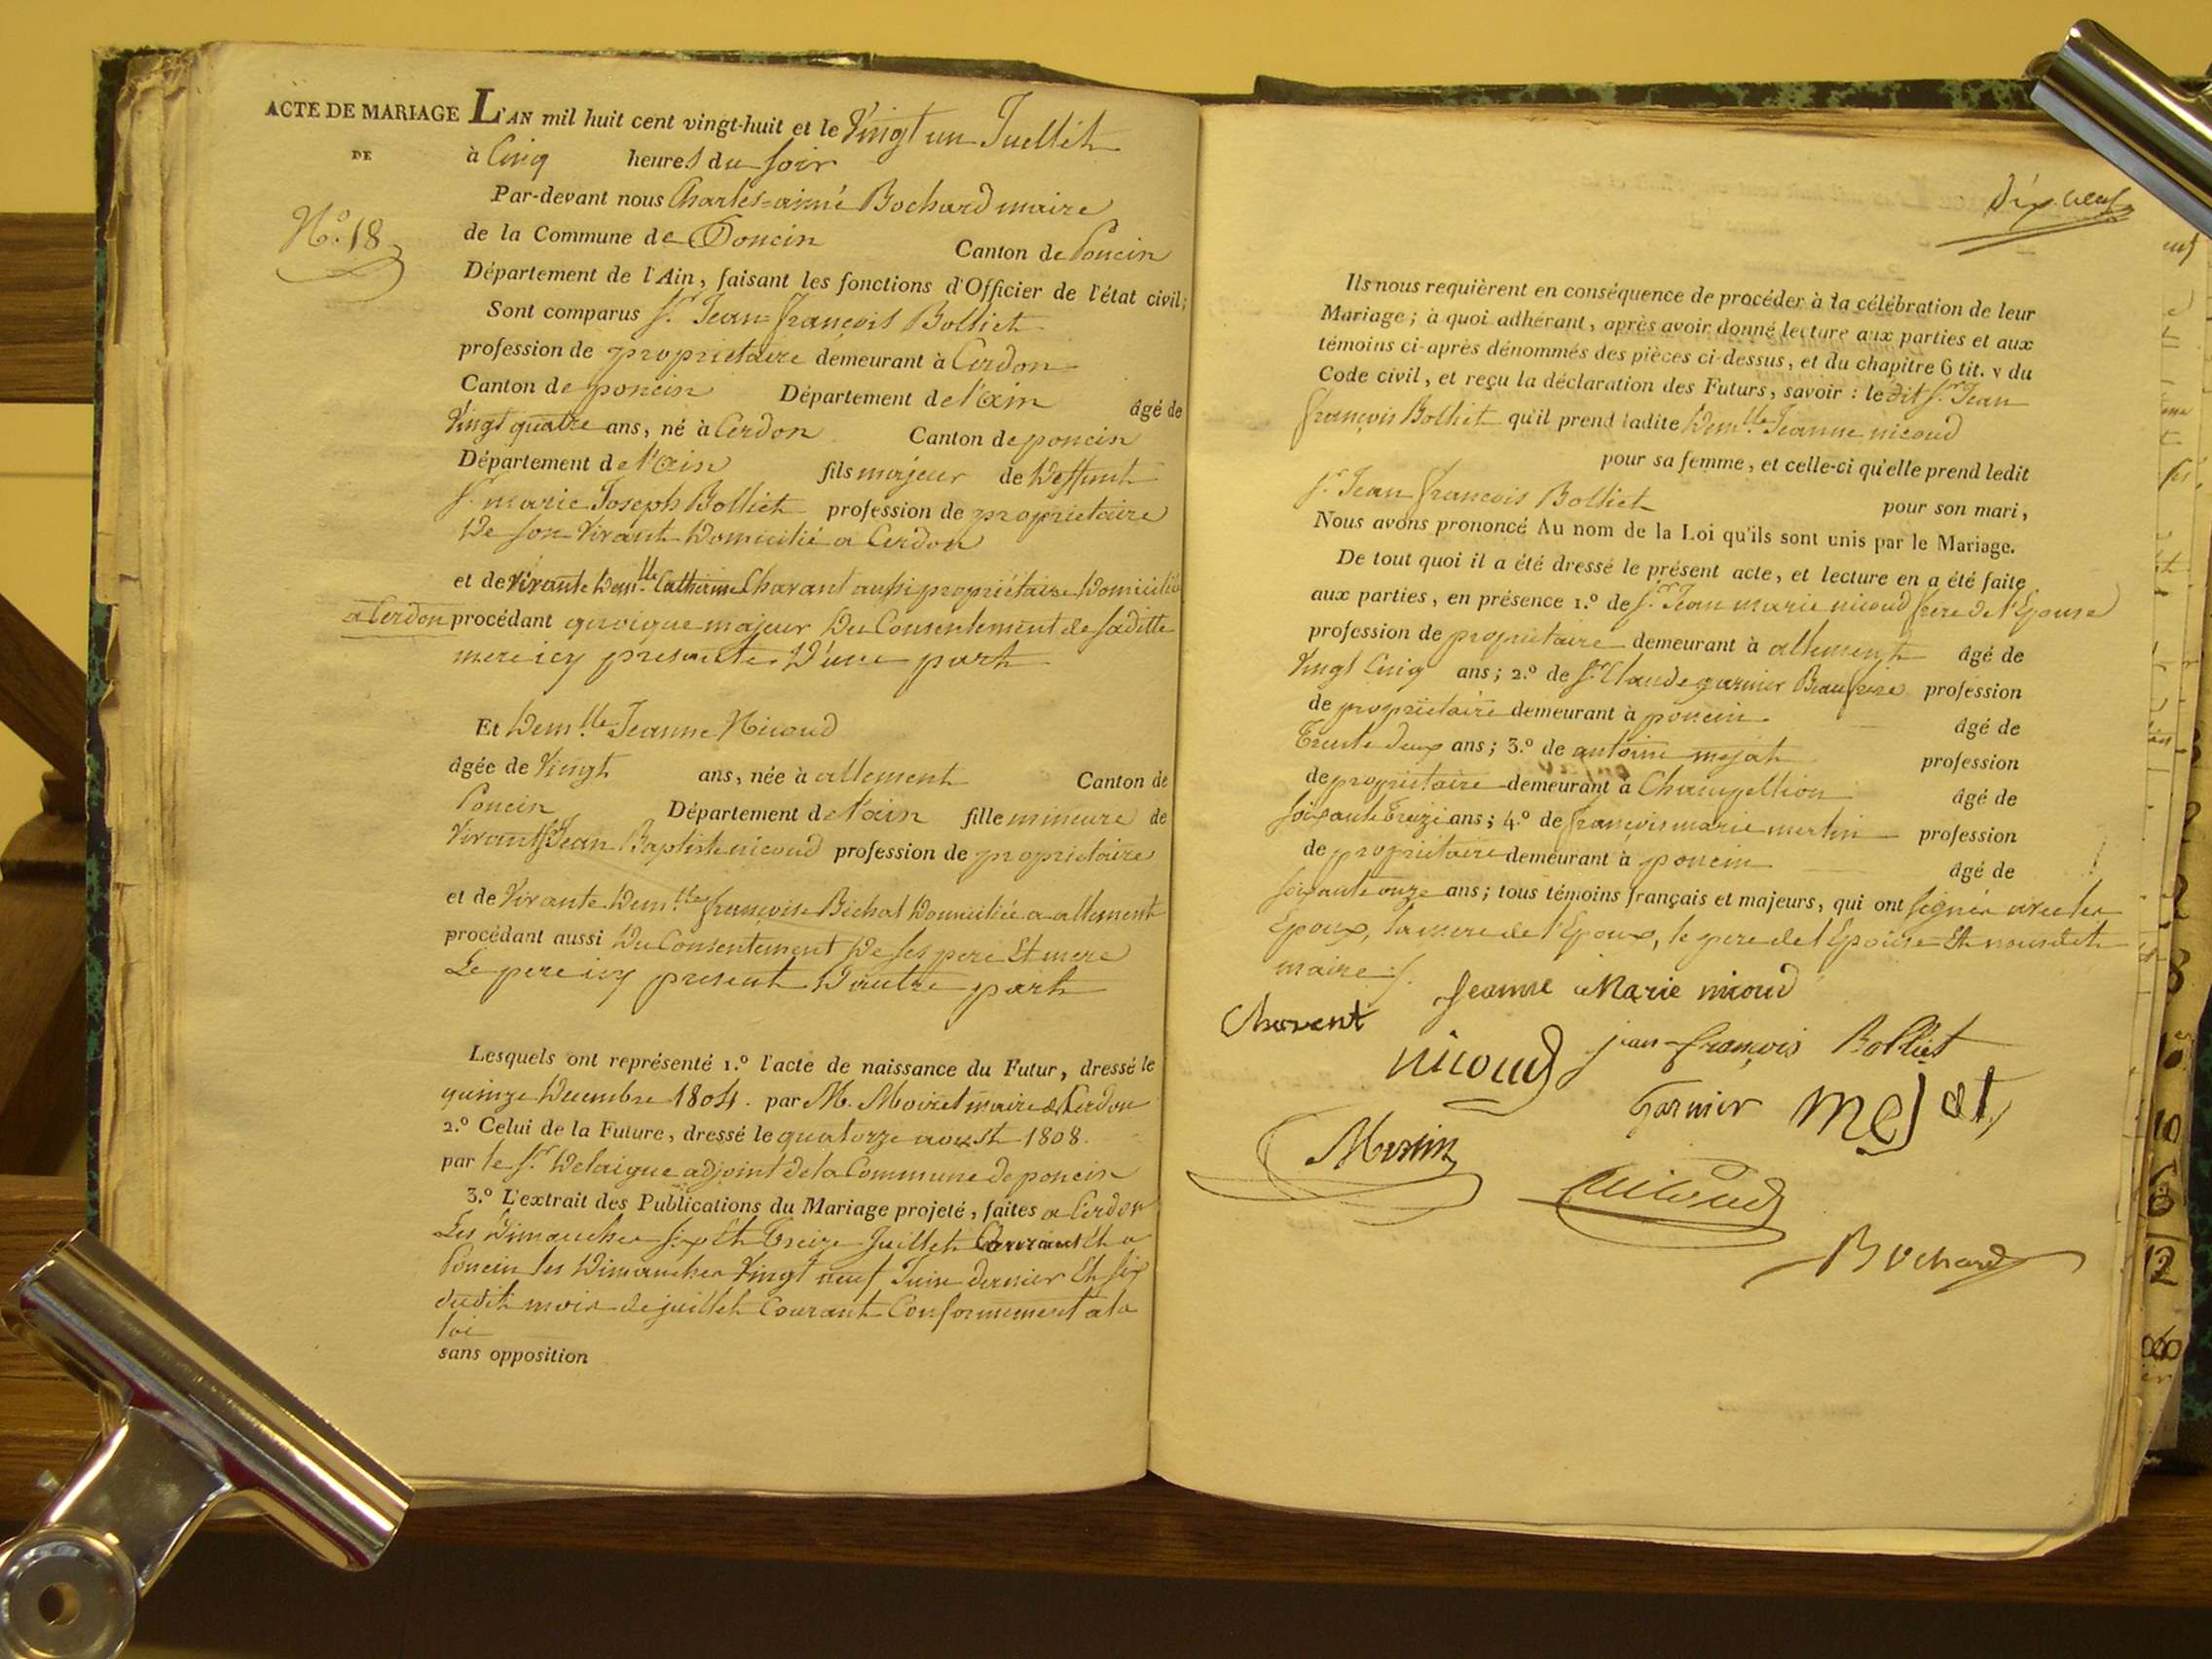 ACTE DE MARIAGE L'AN mil huit cent vingt-huit et le Vingt un Juellét
DE
à Cinq heures du soir
Par-devant nous Charles=aimé Bochard maire
N.º 18
de la Commune de Poncin Canton de Poncin
Département de l'Ain, faisant les fonctions d'Officier de l'état civil;
Sont comparus s.r Jean=françois Bolliet
profession de propriétaire demeurant à Cerdon
Canton de poncin Département de l'ain âgé de
Vingt quatre ans, né à Cerdon Canton de poncin
Département de l'ain fils majeur de Deffunt
s.r marie Joseph Bolliet profession de propriétaire
De son Vivant Domicilié a Cerdon
et de Vivante Dem.lle Catherine Charant aussi propriétaire Domiciliée
a Cerdon procédant quoique majeur Du Consentement de saditte
mere icy presente D'une part
Et Dem.lle Jeanne Nicoud
âgée de Vingt ans, née à allement Canton de
Poncin Département de l'ain fille mineure de
Vivant s.r Jean Baptiste nicoud profession de propriétaire
et de Vivante Dem.lle françoise Bichat Domiciliée a allement
procédant aussi Du Consentement De ses pere Et mere
Le pere icy present D'autre part
Lesquels ont représenté 1.º l'acte de naissance du Futur, dressé le
quinze Decembre 1804. par M. Moiret maire de Cerdon
2.º Celui de la Future, dressé le quatorze aoust 1808.
par le s.r Delaigue adjoint de la Commune de poncin
3.º L'extrait des Publications du Mariage projeté, faites a Cerdon
Les Dimanches six et Treize Juillet Courant Et a
Poncin les Dimanches Vingt neuf Juin dernier Et six
dudit mois de juillet Courant Conformement a la
loi
sans opposition
dix neuf
Ils nous requièrent en conséquence de procéder à la célébration de leur
Mariage; à quoi adhérant, après avoir donné lecture aux parties et aux
témoins ci-après dénommés des pièces ci-dessus, et du chapitre 6 tit. v du
Code civil, et reçu la déclaration des Futurs, savoir : le dit s.r Jean
françois Bolliet qu'il prend ladite Dem.lle Jeanne nicoud
pour sa femme, et celle-ci qu'elle prend ledit
s.r Jean françois Bolliet pour son mari,
Nous avons prononcé Au nom de la Loi qu'ils sont unis par le Mariage.
De tout quoi il a été dressé le présent acte, et lecture en a été faite
aux parties, en présence 1.º de s.r Jean marie nicoud frere de l'Epouse
profession de propriétaire demeurant à allement âgé de
Vingt Cinq ans; 2.º de s.r Claude garnier Beaufrere profession
de propriétaire demeurant à poncin âgé de
Trente deux ans; 3.º de antoine mejat profession
de propriétaire demeurant à Champellion âgé de
soixante Treize ans; 4.º de françois marie merlin profession
de propriétaire demeurant à poncin âgé de
soixante onze ans; tous témoins français et majeurs, qui ont signés avec les
Epoux, la mere de l'Epoux, le pere de l'Epouse Et nous dit
maire ./.
Jeanne Marie nicoud
Charvent
nicoud jean-françois Bolliet
Garnier mejat
Merlin
nicoud
Bochard